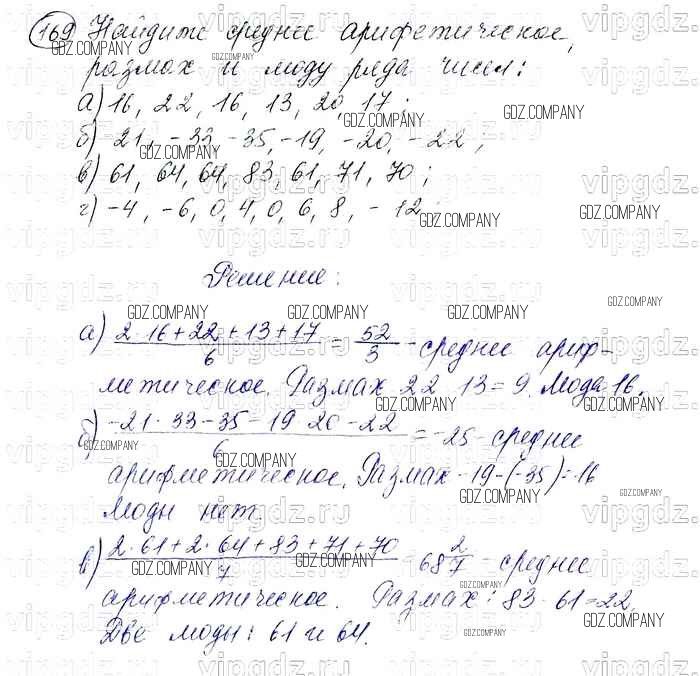 169 Найдите среднее арифметическое,
размах и моду ряда чисел:
а) 16, 22, 16, 13, 20, 17;
б) -21, -33 -35, -19, -20, -22;
в) 61, 64, 64, 83, 61, 71, 70;
г) -4, -6, 0, 4, 0, 6, 8, -12
Решение:
а) (2·16+22+13+17)/6 = 52/3 - среднее ариф-
метическое. Размах 22 13=9. Мода 16.
б) (-21·33-35-19 20-22)/6 = -25- среднее
арифметическое. Размах -19-(-35)=16
Моды нет.
в) (2·61+2·64+83+71+70)/7 = 68 2/7 - среднее
арифметическое. Размах: 83-61=22
Две моды: 61 и 64.